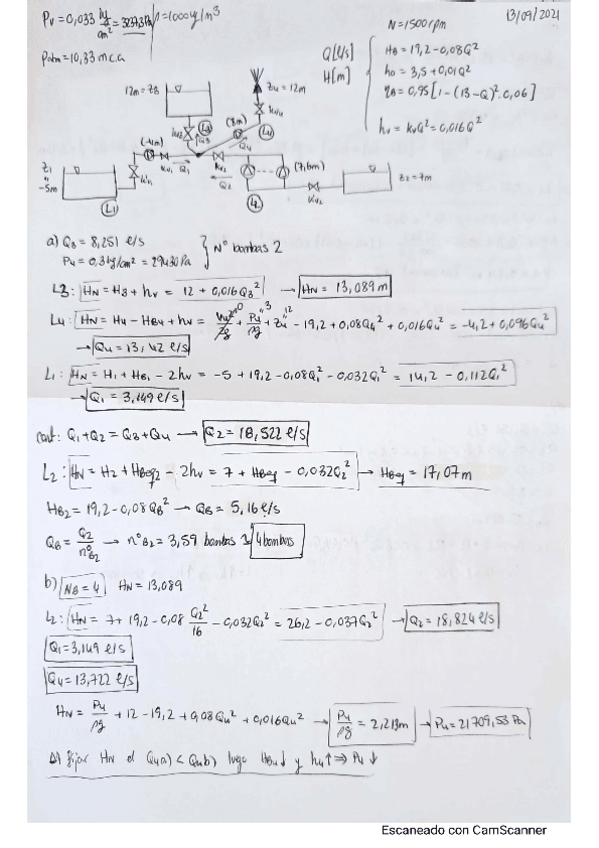 Pv = 0,033 kg/cm² = 3237,3 Pa ρ = 1000 g/m³
N = 1500 rpm
13/09/2021
Patm = 10,33 m.c.a
Q[l/s]
H[m]
HB = 19,2 - 0,08Q²
h0 = 3,5 + 0,01Q²
ηB = 0,95[1 - (13 - Q)²·0,06]
hv = kvQ² = 0,016Q²
12m = Z3
Z4 = 12m
kv4
kv3
L3
Q3
(8m)
L4
Q4
(-4m)
kv1
Q1
kv2
Q2
(7,6m)
Z1
-5m
kv1
L1
L2
kv2
Z2 = 7m
a) Q3 = 8,251 l/s
P4 = 0,3 kg/cm² = 29430 Pa
} Nº bombas 2
L3: HN = H3 + hv = 12 + 0,016Q3² → HN = 13,089 m
L4: HN = H4 - HB4 + hv = + P4/ρg + Z4 - 19,2 + 0,08Q4² + 0,016Q4² = -4,2 + 0,096Q4²
→ Q4 = 13,42 l/s
L1: HN = H1 + HB1 - 2hv = -5 + 19,2 - 0,08Q1² - 0,032Q1² = 14,2 - 0,112Q1²
→ Q1 = 3,149 l/s
cont: Q1 + Q2 = Q3 + Q4 → Q2 = 18,522 l/s
L2: HN = H2 + HBeq2 - 2hv = 7 + HBeq - 0,032Q2² → HBeq = 17,07 m
HB2 = 19,2 - 0,08QB² → QB = 5,16 l/s
QB = Q2/nºB2 → nºB2 = 3,59 bombas 4 bombas
b) NB = 4 HN = 13,089
L2: HN = 7 + 19,2 - 0,08 Q2²/16 - 0,032Q2² = 26,2 - 0,037Q2² → Q2 = 18,824 l/s
Q1 = 3,149 l/s
Q4 = 13,722 l/s
HN = P4/ρg + 12 - 19,2 + 0,08Q4² + 0,016Q4² → P4/ρg = 2,213m → P4 = 21709,53 Pa
Al fijar HN el Q4a) < Q4b) luego HB4↓ y hv↑ ⇒ P4 ↓
Escaneado con CamScanner